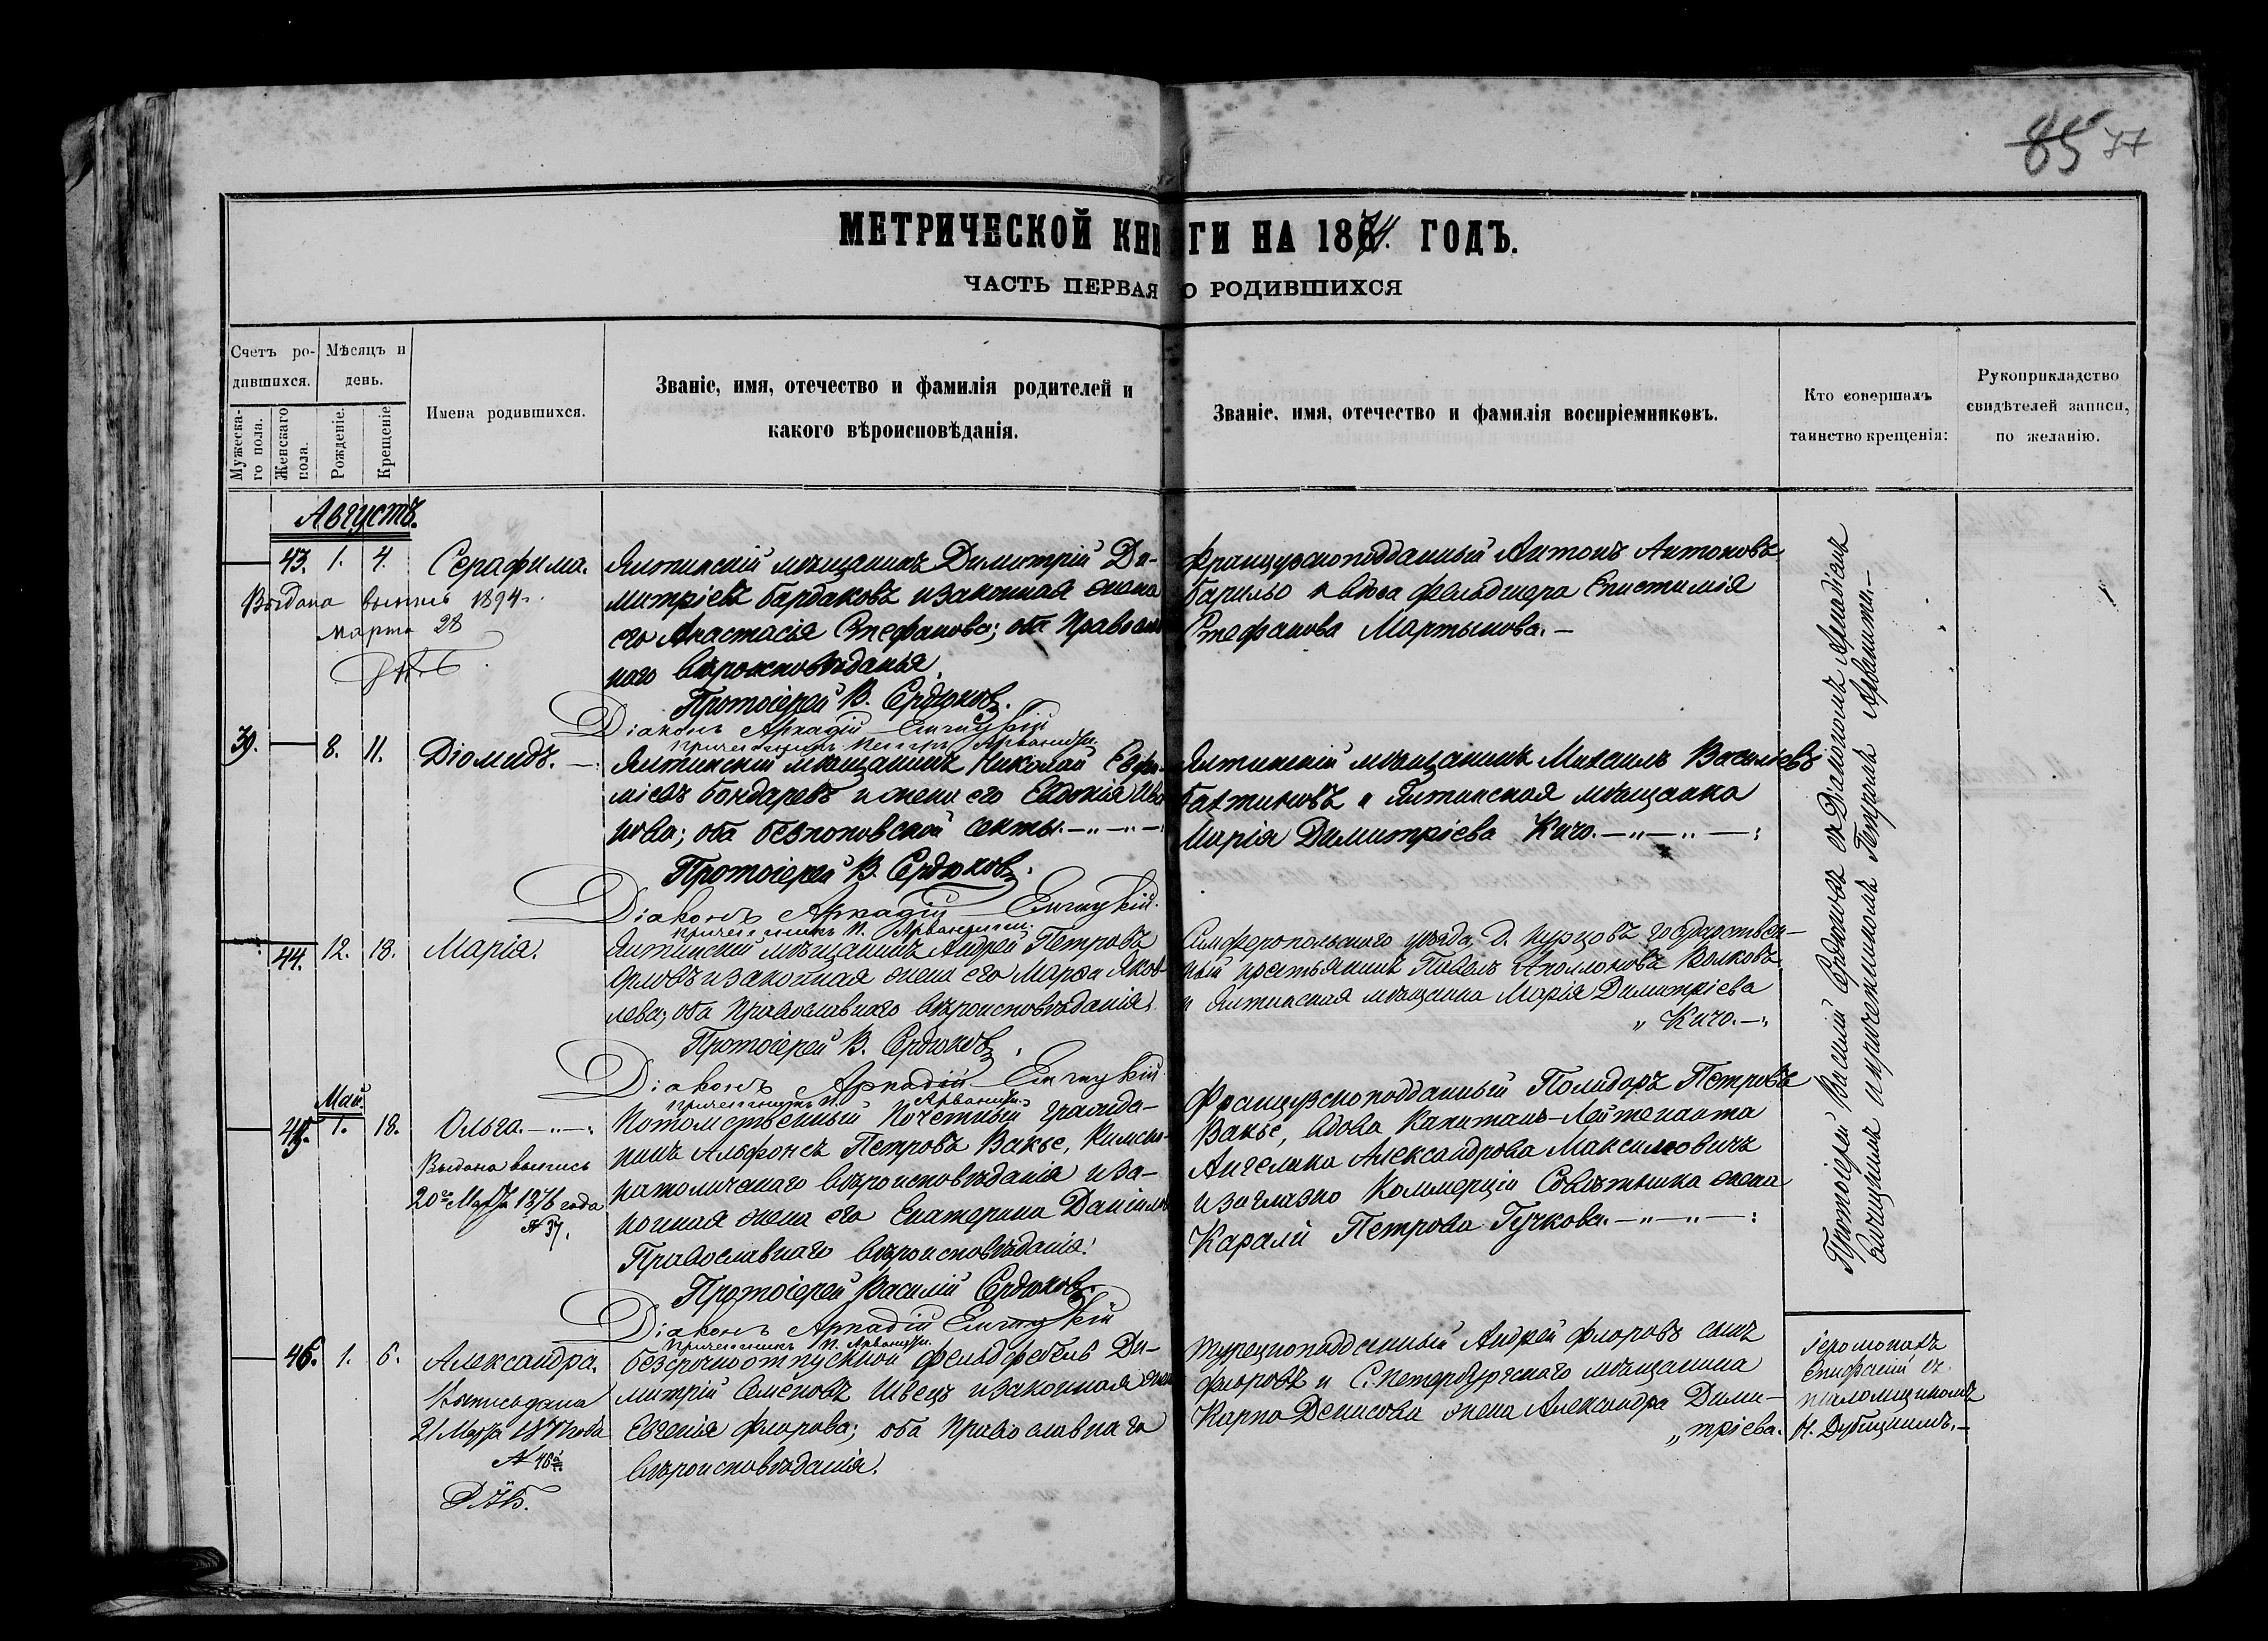 85 77
МЕТРИЧЕСКОЙ КНИГИ НА 1874. ГОДЪ.
ЧАСТЬ ПЕРВАЯ О РОДИВШИХСЯ
Счетъ ро-
дившихся.
Мужеска-
го пола.
Женскаго
пола.
Мѣсяцъ и
день.
Рожденіе.
Крещеніе
Имена родившихся.
Званіе, имя, отечество и фамилія родителей и
какого вѣроисповѣданія.
Званіе, имя, отечество и фамилія воспріемниковъ.
Кто совершалъ
таинство крещенія:
Рукоприкладство
свидѣтелей записи,
по желанію.
Августъ.
43. 1. 4. Серафима.
Выдана выпись 1894
марта 28
Ялтинскій мѣщанинъ Димитрій Ди-
митріевъ Бардаковъ и законная жена
его Анастасія Стефанова; оба Православ
наго вѣроисповѣданія.
Протоіерей В. Сердюковъ.
Діаконъ Аркадій
Причетникъ Петръ Арванити.
Французскоподданный Антонъ Антоновъ
и вдова фельдшера Епистимія
Стефанова Мартынова.—
39. 8. 11. Діомидъ.—
Ялтинскій мѣщанинъ Николай Евфи-
міевъ Бондаревъ и жена его Евдокія Ива
нова; оба безпоповской секты.—„—„—
Протоіерей В. Сердюковъ.
Діаконъ Аркадій
Причетникъ П. Арванити.
Ялтинскій мѣщанинъ Михаилъ Васильевъ
Бахтиновъ и Ялтинская мѣщанка
Марія Димитріева Кичо.—„—„—:
44. 12. 18. Марія.
Ялтинскій мѣщанинъ Андрей Петровъ
Орловъ и законная жена его Марѳа Яков
лева; оба Православнаго вѣроисповѣданія.
Протоіерей В. Сердюковъ.
Діаконъ Аркадій
Причетникъ П. Арванити.
Симферопольскаго уѣзда Д. государствен-
ный крестьянинъ Павелъ Аполлоновъ Волковъ
и Ялтинская мѣщанка Марія Димитріева
„ Кичо.—:
Май.
45. 1. 18. Ольга.—„—:
Выдана выпись
20го Марта 1876 года
№ 37.
Потомственный Почетный гражда-
нинъ Альфонсъ Петровъ Вакье, Римско-
католическаго вѣроисповѣданія и за-
конная жена его Екатерина Даніилов
Православнаго вѣроисповѣданія.
Протоіерей Василій Сердюковъ.
Діаконъ Аркадій
Причетникъ П. Арванити.
Французскоподданный Полидоръ Петровъ
Вакье, вдова Капитанъ-Лейтенанта
Ангелика Александрова Максимовичъ
и заглазно Коммерціи Совѣтника жена
Каралй Петрова Гучкова.—„—„—:
Протоіерей Василій Сердюковъ съ Діакономъ Аркадіемъ
и причетникомъ Петромъ Арванити.—
46. 1. 6. Александра.
Выпись дана
21 Марта года
№ 46
Безсрочноотпускной фельдфебель Ди-
митрій Семеновъ Швецъ и законная жена
Евгенія Флорова; оба Православнаго
вѣроисповѣданія.
Турецкоподданный Андрей Флоровъ сынъ
Флоровъ и С.Петербургскаго мѣщанина
Карпа Денисова жена Александра Дими-
„ тріева.
Іеромонахъ
Епифаній съ
псаломщикомъ